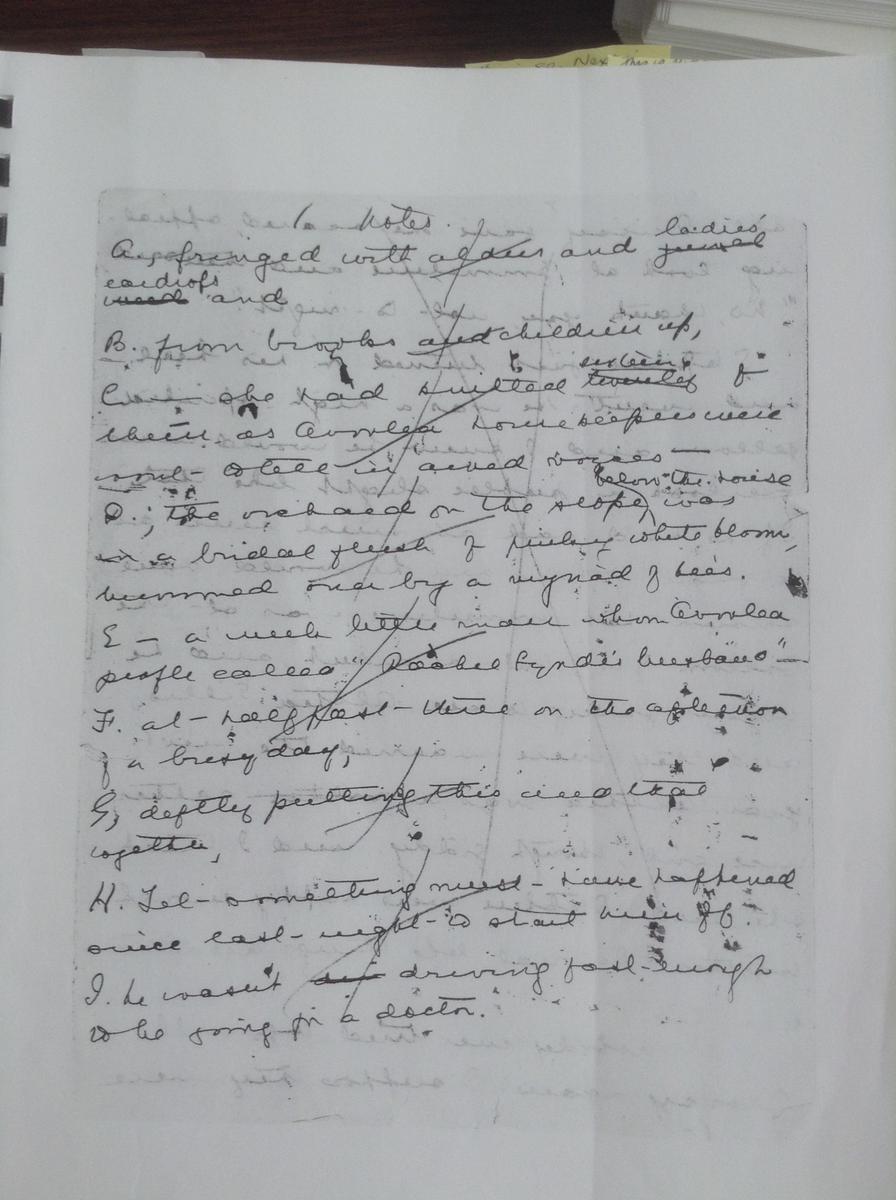 Next this is
1 Notes.
ladies'
A, fringed with alders and jewel
eardrops
weed and
B. from brooks and children up,
sixteen
C — she had knitted twenty of
them as Avonlea housekeepers were
wont to tell in awed voices —
below the house
D. ; the orchard on the slope, was
in a bridal flush of pinky white bloom,
hummed over by a myriad of bees.
E — a meek little man whom Avonlea
people called "Rachel Lynde's husband" —
F. at half past three on the afternoon
of a busy day,
G, deftly putting this and that
together,
H. Yet something must have happened
since last night to start him off.
I. he wasn't driving fast enough
to be going for a doctor.